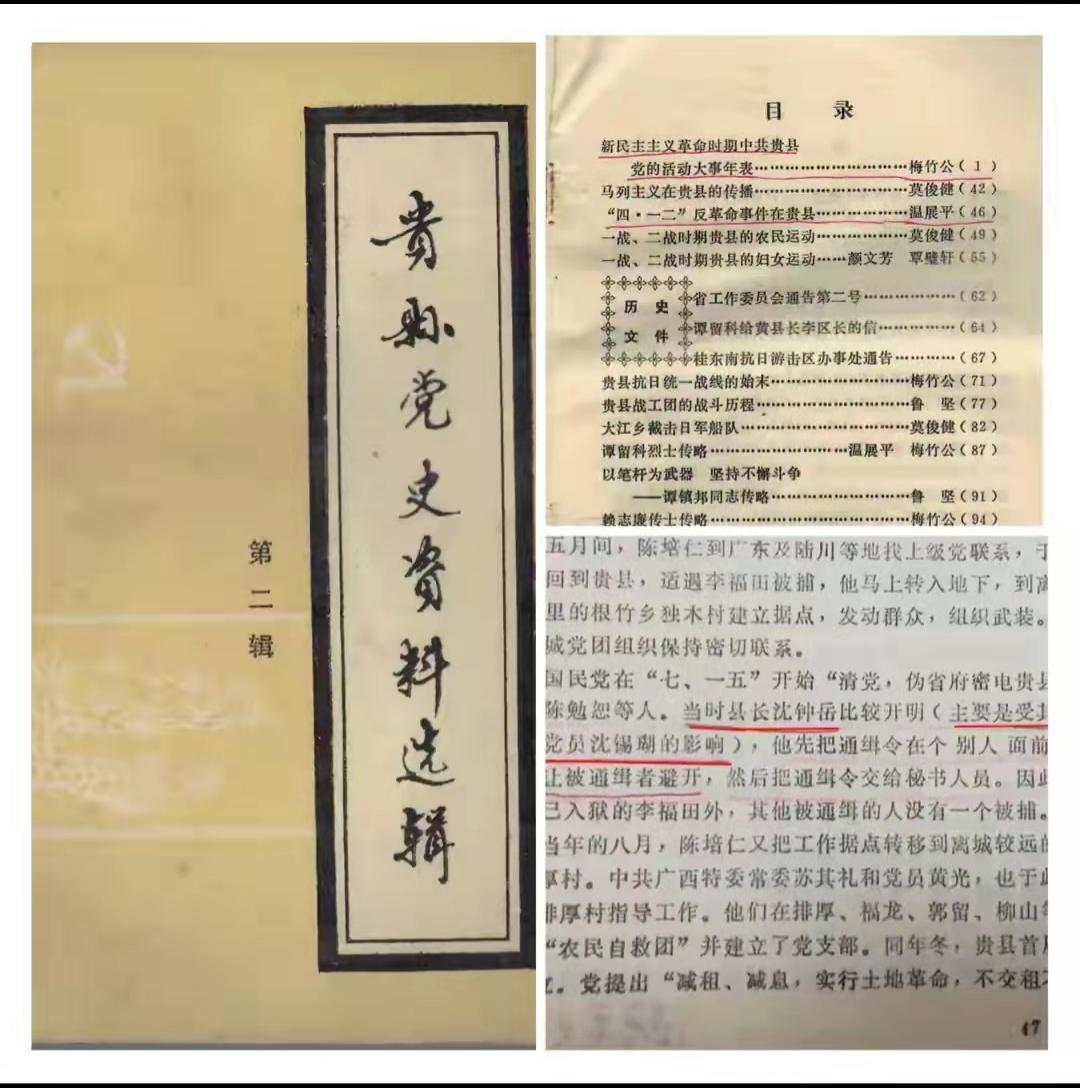 贵县党史资料选辑
第二辑
目 录
新民主主义革命时期中共贵县
党的活动大事年表…………………………梅竹公（1）
马列主义在贵县的传播…………………………莫俊健（42）
“四·一二”反革命事件在贵县………………温展平（46）
一战、二战时期贵县的农民运动………………莫俊健（49）
一战、二战时期贵县的妇女运动……颜文芳 覃璧轩（55）
历史
文件
省工作委员会通告第二号………………（62）
谭留科给黄县长李区长的信……………（64）
桂东南抗日游击区办事处通告…………（67）
贵县抗日统一战线的始末………………………梅竹公（71）
贵县战工团的战斗历程…………………………鲁 坚（77）
大江乡截击日军船队……………………………莫俊健（82）
谭留科烈士传略…………………………温展平 梅竹公（87）
以笔杆为武器 坚持不懈斗争
——谭镇邦同志传略………………………鲁 坚（91）
赖志廉传士传略…………………………………梅竹公（94）
五月间，陈培仁到广东及陆川等地找上级党联系，于
回到贵县，适遇李福田被捕，他马上转入地下，到离
里的根竹乡独木村建立据点，发动群众，组织武装。
城党团组织保持密切联系。
国民党在“七、一五”开始“清党，伪省府密电贵县
陈勉恕等人。当时县长沈钟岳比较开明（主要是受其
党员沈锡瑚的影响），他先把通缉令在个 别人 面前
让被通缉者避开，然后把通缉令交给秘书人员。因此
已入狱的李福田外，其他被通缉的人没有一个被捕。
当年的八月，陈培仁又把工作据点转移到离城较远的
厚村。中共广西特委常委苏其礼和党员黄光，也于此
排厚村指导工作。他们在排厚、福龙、郭留、柳山等
“农民自救团”并建立了党支部。同年冬，贵县首届
立。党提出“减租、减息，实行土地革命，不交租不
47